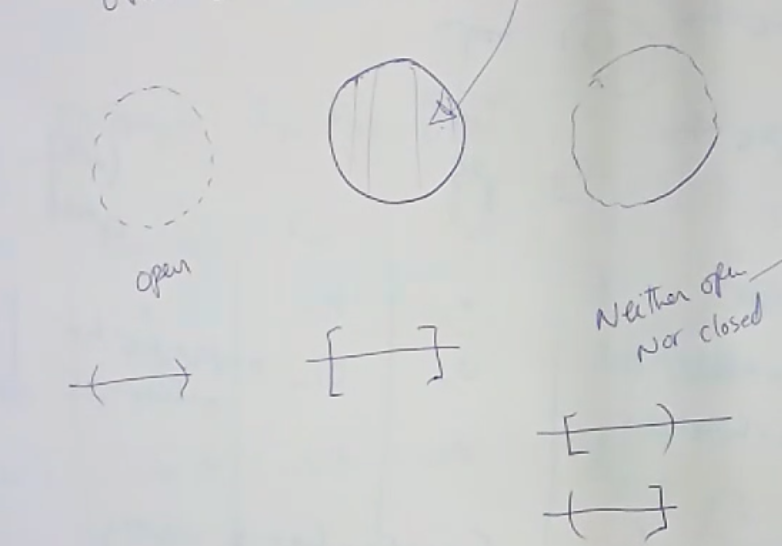 open
Neither open
Nor closed